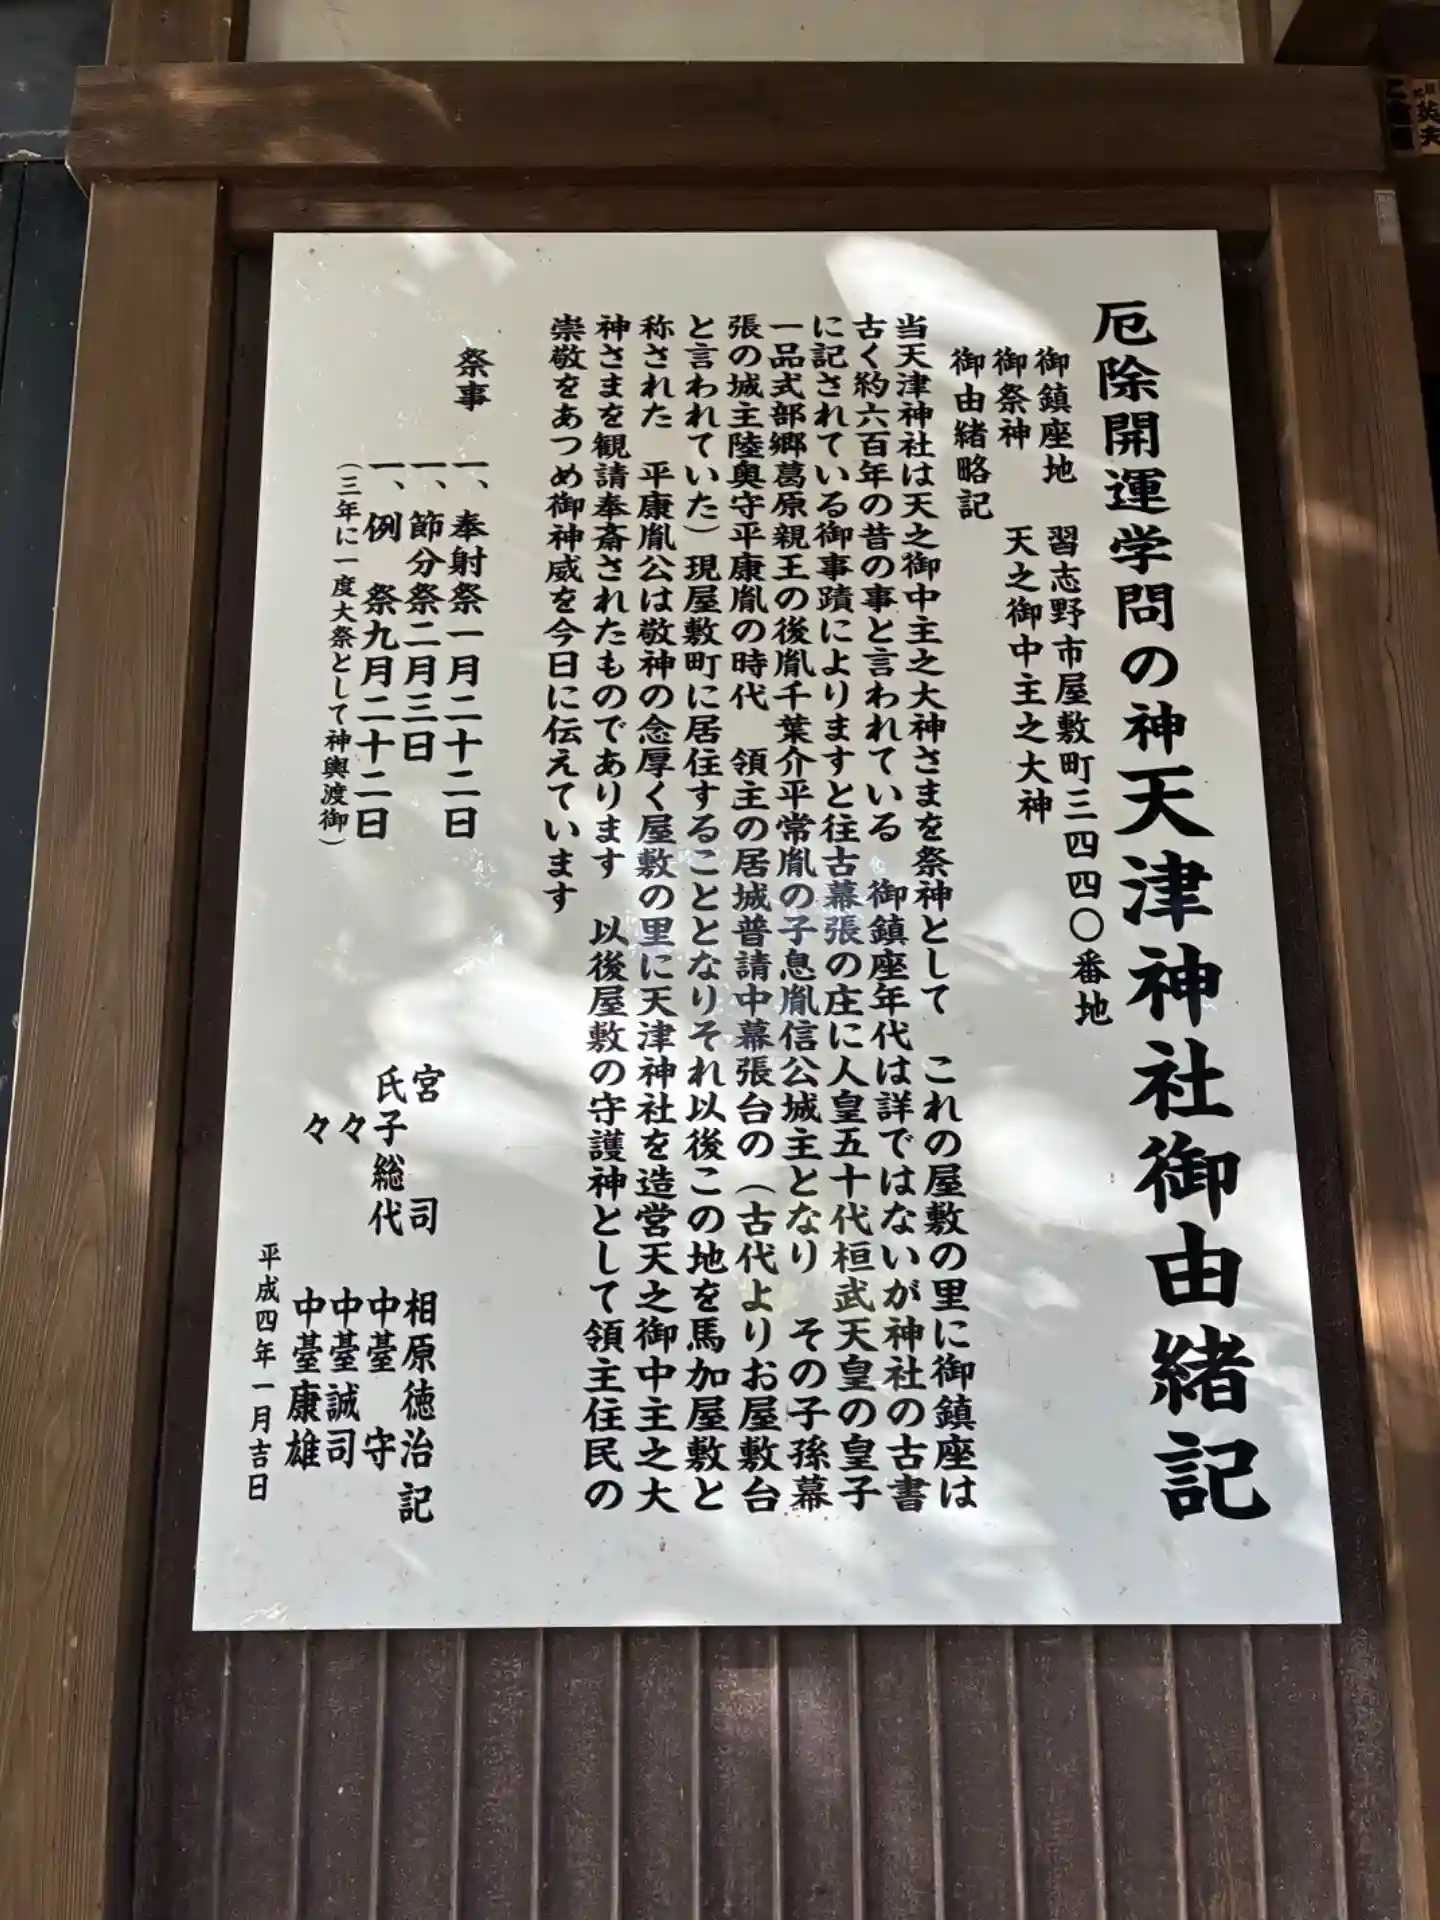 厄除開運学問の神天津神社御由緒記
御鎮座地 習志野市屋敷町三四四〇番地
御祭神 天之御中主之大神
御由緒略記
当天津神社は天之御中主之大神さまを祭神として これの屋敷の里に御鎮座は
古く約六百年の昔の事と言われている 御鎮座年代は詳ではないが神社の古書
に記されている御事蹟によりますと往古幕張の庄に人皇五十代桓武天皇の皇子
一品式部郷葛原親王の後胤千葉介平常胤の子息胤信公城主となり その子孫幕
張の城主陸奥守平康胤の時代 領主の居城普請中幕張台の(古代よりお屋敷台
と言われていた)現屋敷町に居住することとなりそれ以後この地を馬加屋敷と
称された 平康胤公は敬神の念厚く屋敷の里に天津神社を造営天之御中主之大
神さまを観請奉斎されたものであります 以後屋敷の守護神として領主住民の
崇敬をあつめ御神威を今日に伝えています
祭事 一、奉射祭一月二十二日
一、節分祭二月三日
一、例 祭九月二十二日
(三年に一度大祭として神輿渡御)
宮 司 相原徳治 記
氏子総代 中臺 守
々 中臺誠司
々 中臺康雄
平成四年一月吉日